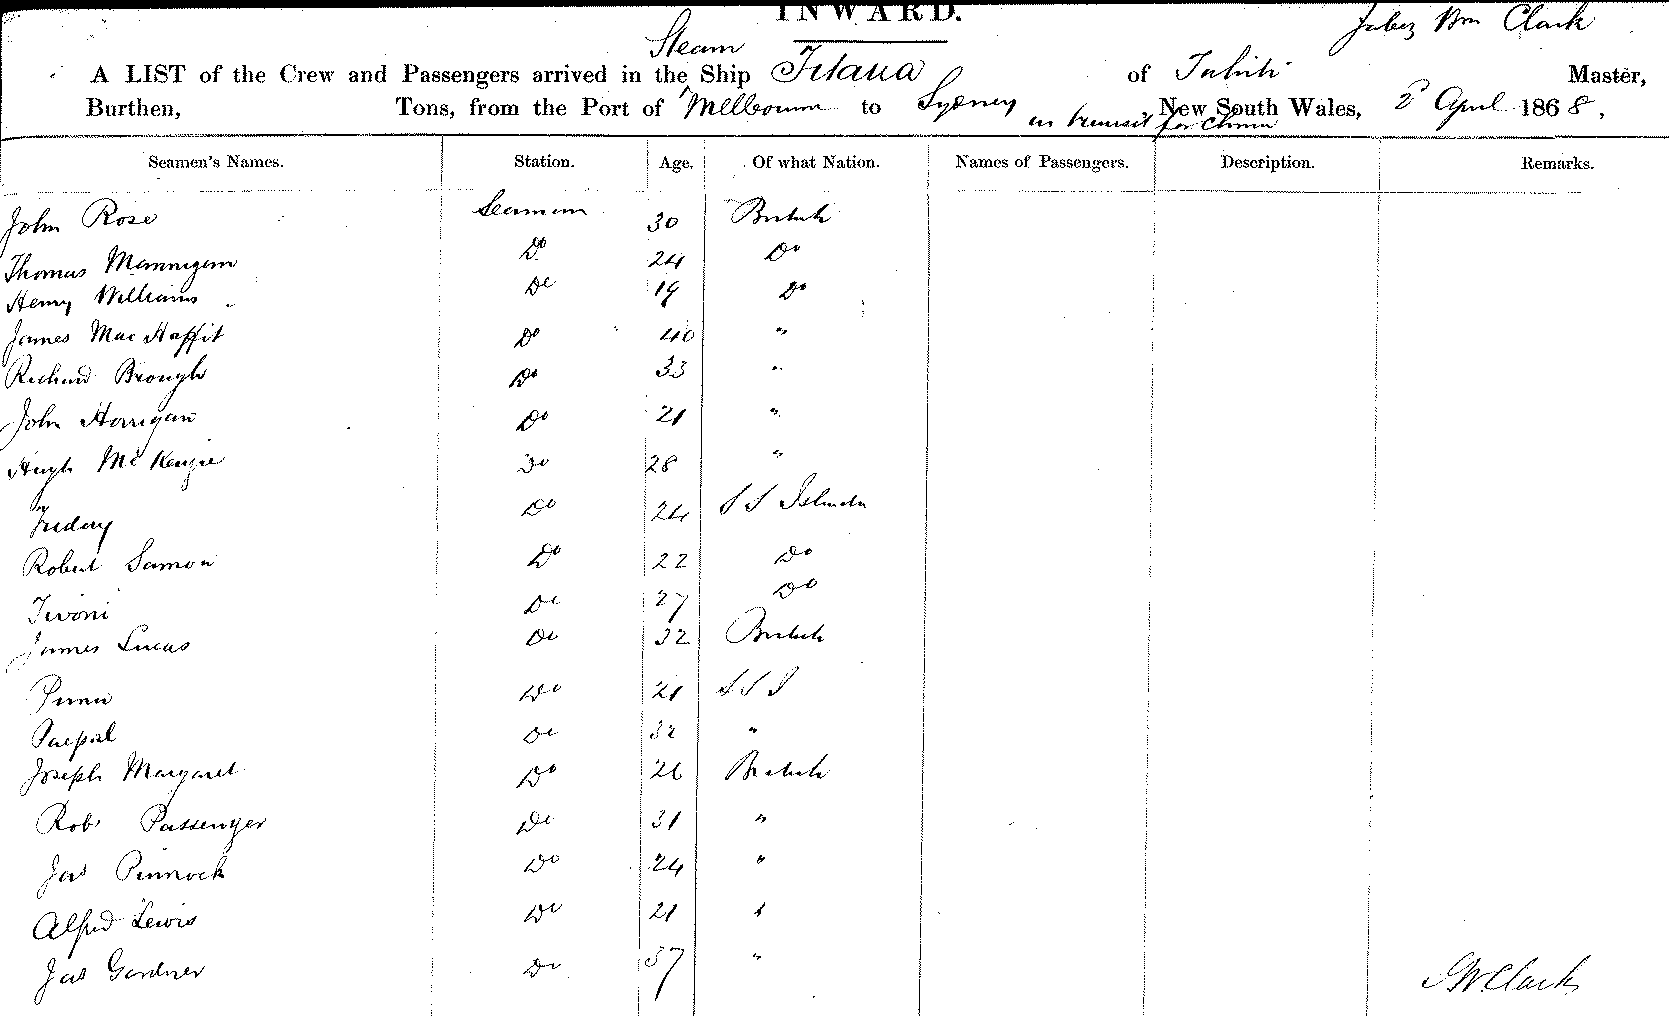 INWARD.
Jabez Wm Clark
Steam
A LIST of the Crew and Passengers arrived in the Ship Titaua of Tahiti Master,
Burthen, Tons, from the Port of Melbourne to Sydney New South Wales, 2d April 1868.
in transit for China
Seamen's Names. Station. Age. Of what Nation. Names of Passengers. Description. Remarks.
John Rose Seaman 30 British
Thomas Do 24 Do
Henry Williams Do 19 Do
James Mac Haffit Do 40 "
Richard Brough Do 33 "
John Horrigan Do 21 "
Hugh McKenzie Do 28 "
Friday Do 24 S S Islands
Robert Samon Do 22 Do
Tivoni Do 27 Do
James Lucas Do 32 British
Do 21 S S I
Do 32 "
Joseph Margaret Do 26 British
Rob Passenger Do 31 "
Jas Pinnock Do 24 "
Alfred Lewis Do 21 "
Jas Gardner Do 37 "
J W Clark